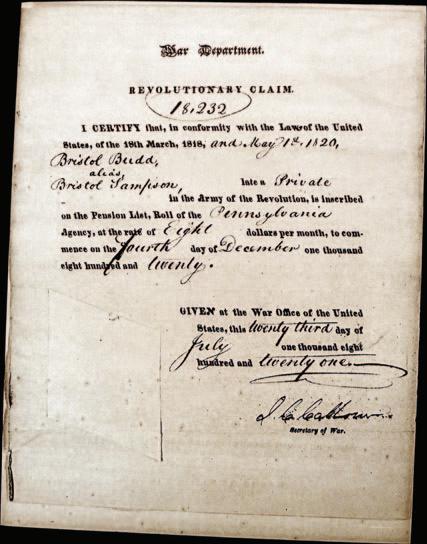 War Department.
REVOLUTIONARY CLAIM.
18,232
I CERTIFY that, in conformity with the Law of the United
States, of the 18th March, 1818, and May 1st, 1820,
Bristol Budd,
alias,
Bristol Sampson, late a Private
in the Army of the Revolution, is inscribed
on the Pension List, Roll of the Pennsylvania
Agency, at the rate of Eight dollars per month, to com-
mence on the fourth day of December one thousand
eight hundred and twenty.
GIVEN at the War Office of the United
States, this twenty third day of
July one thousand eight
hundred and twenty one.
J. C. Calhoun
Secretary of War.